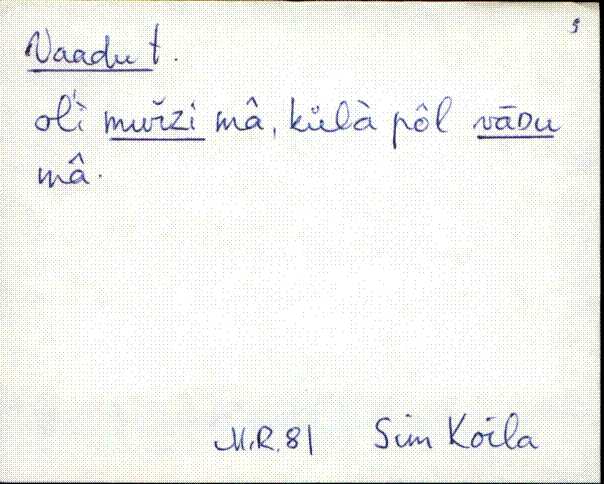 9
Vaadu t.
ol'i muřzi mâ, kùlà pôl vāDu
mâ.
M.R. 81 Sim Koila